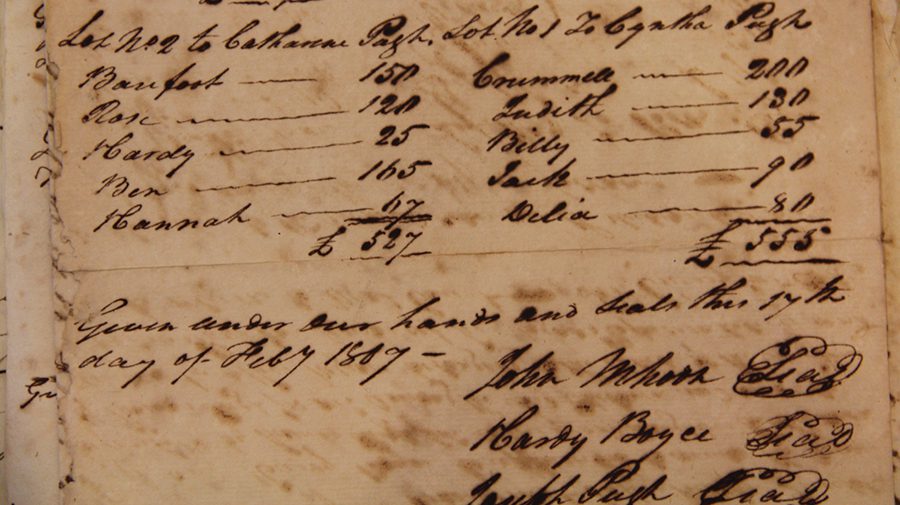 Lot No 2 to Catharine Pugh.
Barefoot — 150
Rose — 120
Hardy — 25
Ben — 165
Hannah — 67
£ 527
Lot No 1 To Cyntha Pugh
Crummell — 200
Judith — 130
Billy — 55
Jack — 90
Delia — 80
£ 555
Given under our hands and seals this 17th
day of Feby 1807 –
John Mhoon Seal
Hardy Boyce Seal
Joseph Pugh Seal